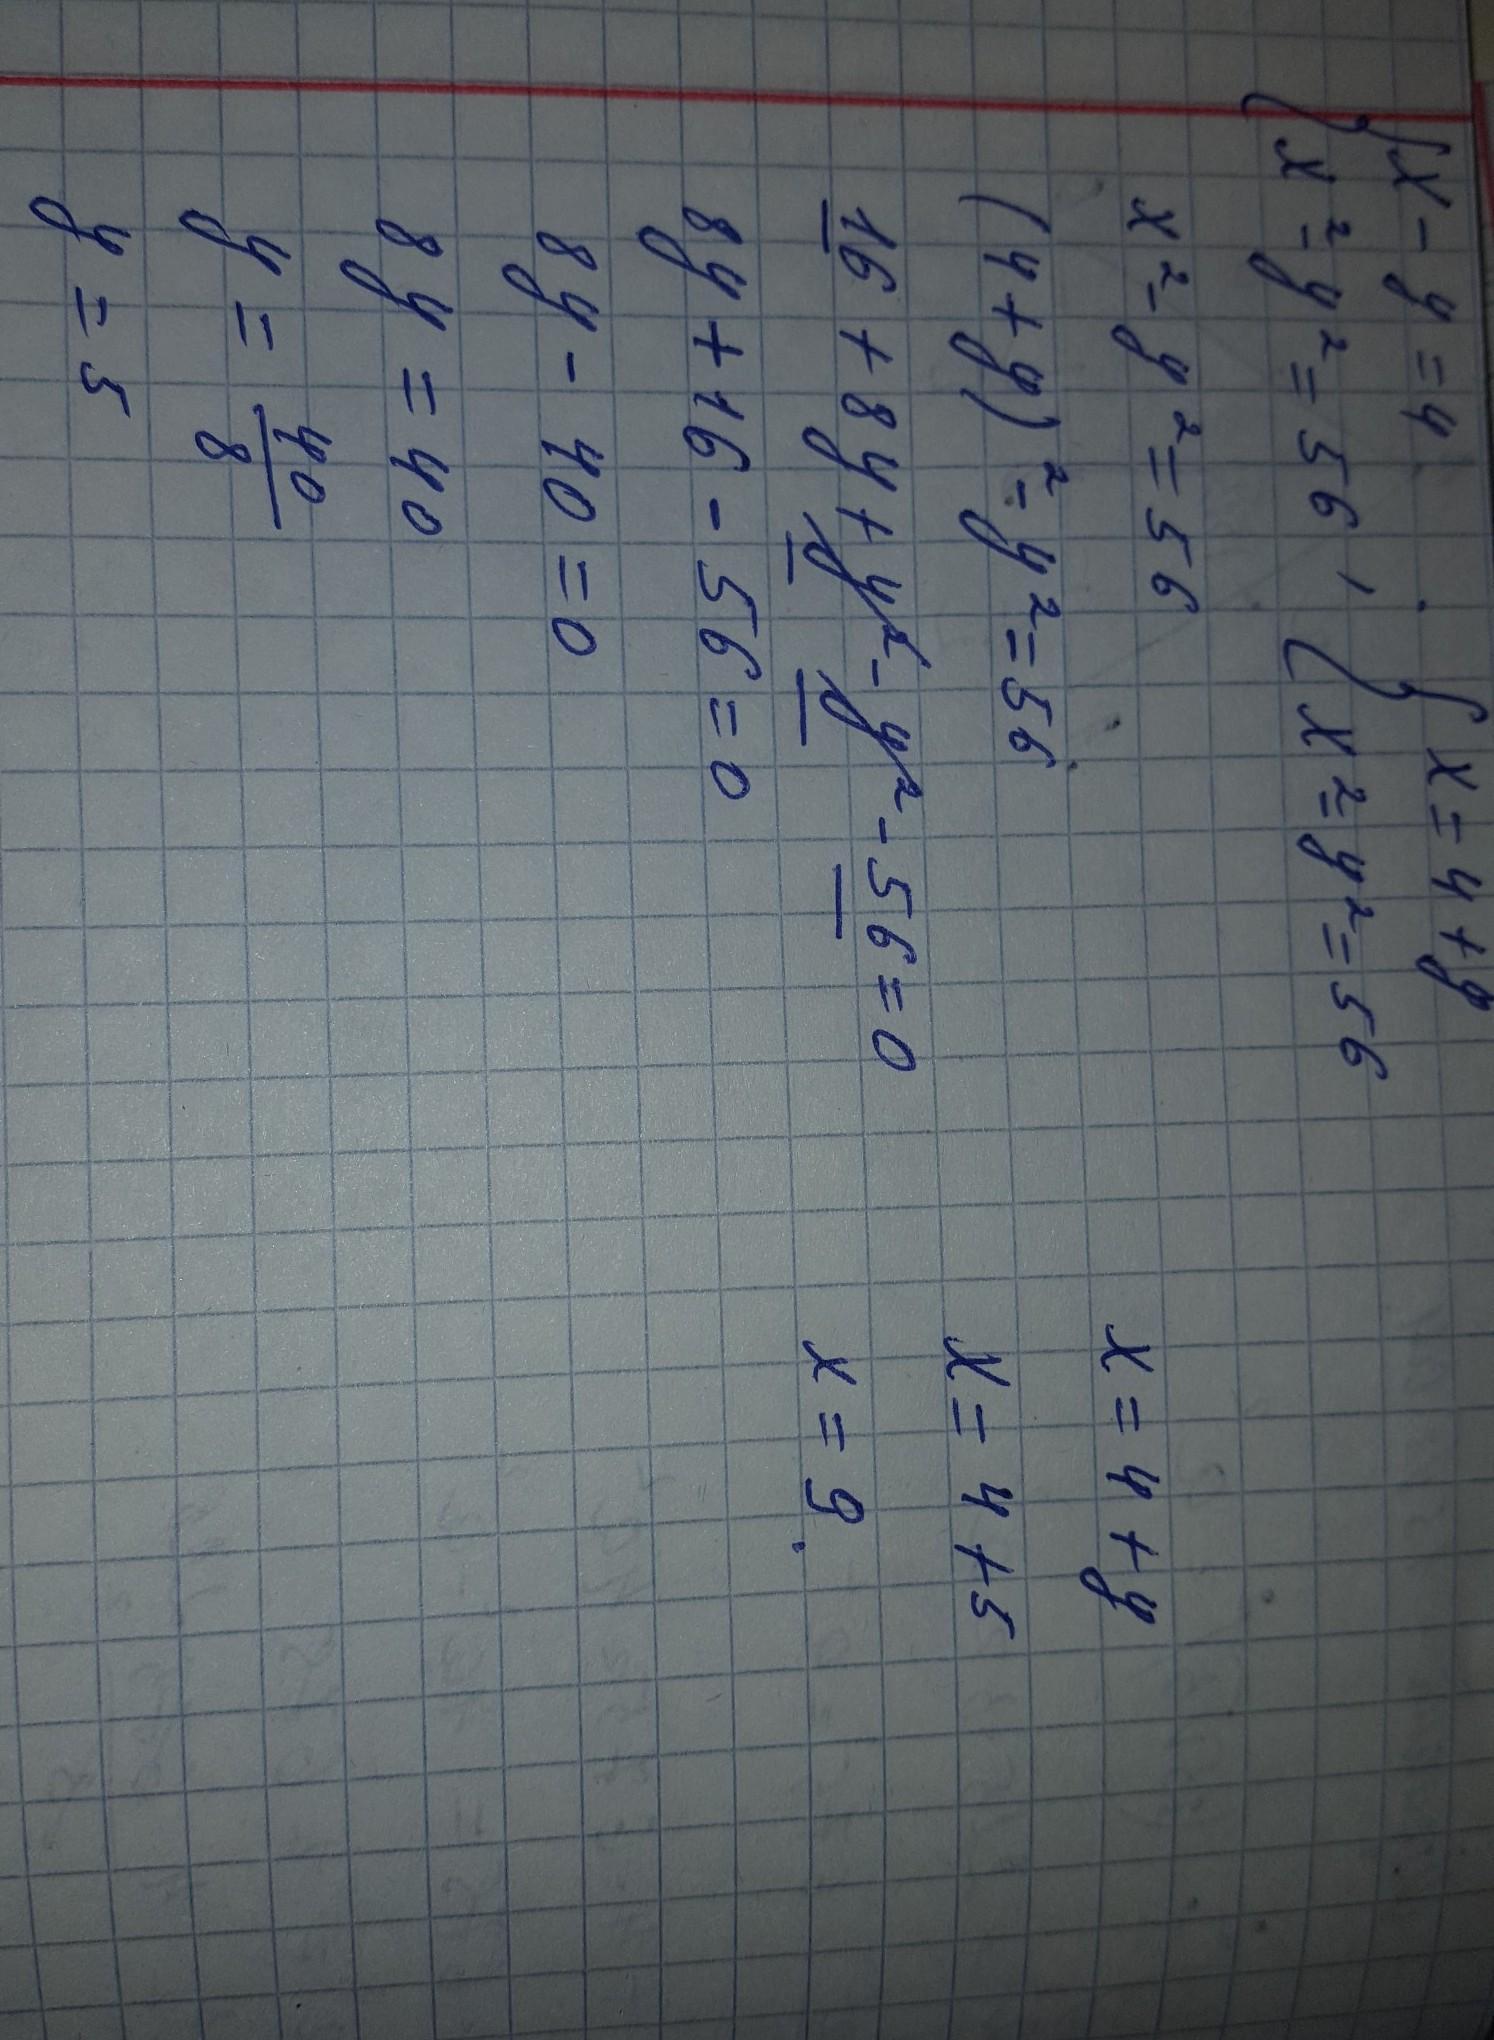 { x - y = 4
{ x² - y² = 56 ,
{ x = 4 + y
{ x² - y² = 56
x² - y² = 56
(4 + y)² - y² = 56
16 + 8y + y² - y² - 56 = 0
8y + 16 - 56 = 0
8y - 40 = 0
8y = 40
y = 40/8
y = 5
x = 4 + y
x = 4 + 5
x = 9.